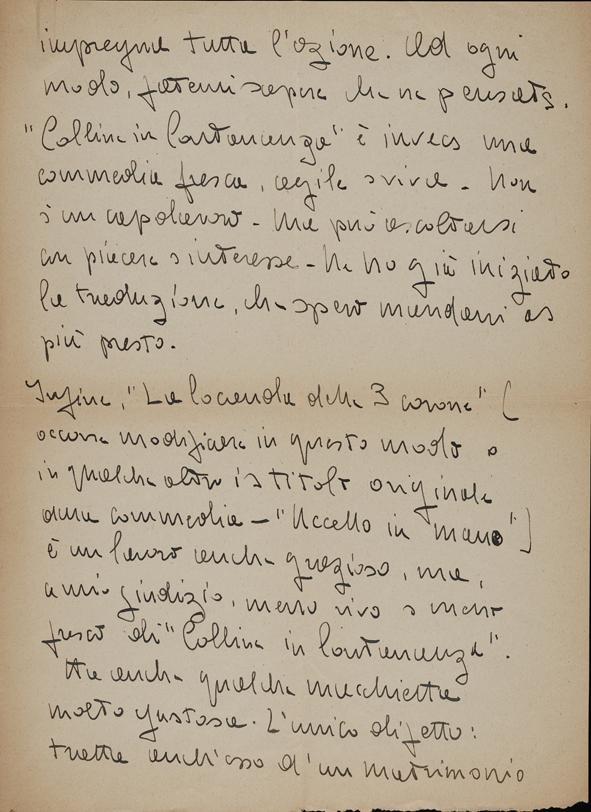 impregna tutta l'azione. Ad ogni
modo, fatemi sapere che ne pensate.
"Colline in lontananza" è invece una
commedia fresca, agile e viva - Non
è un capolavoro - Ma può ascoltarsi
con piacere e interesse - Ne ho già iniziato
la traduzione, che spero mandarvi al
più presto.
Infine, "La locanda delle 3 corone" (
occorre modificare in questo modo o
in qualche altro il titolo originale
della commedia - "Uccello in mano")
è un lavoro anche grazioso, ma,
a mio giudizio, meno vivo e meno
fresco di "Colline in lontananza".
Ha anche qualche macchietta
molto gustosa. L'unico difetto:
tratta anch'esso d'un matrimonio